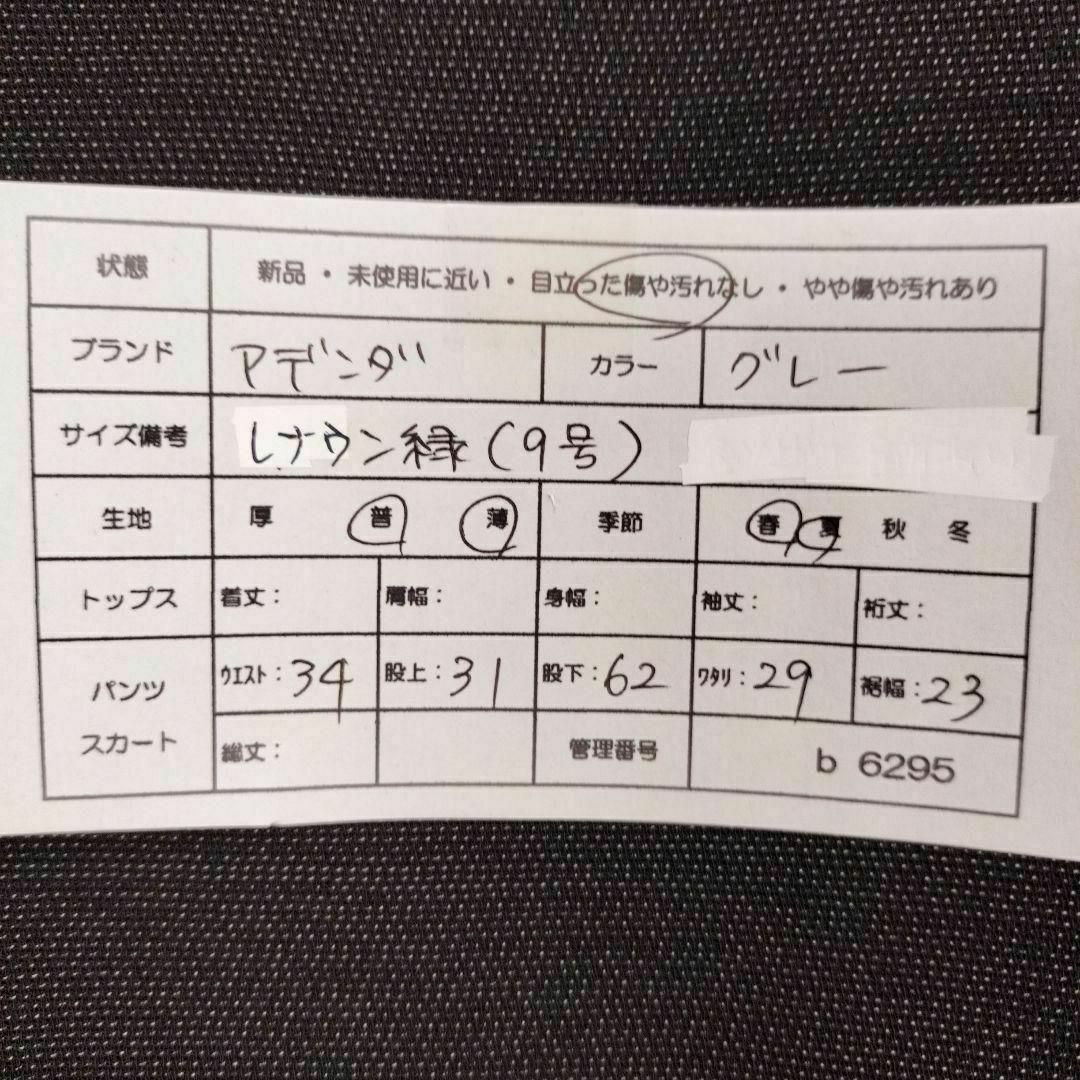 状態 新品・未使用に近い・目立った傷や汚れなし・やや傷や汚れあり
ブランド アデンダ カラー グレー
サイズ備考 レナウン緑(9号)
生地 厚 普 薄 季節 春 夏 秋 冬
トップス 着丈: 肩幅: 身幅: 袖丈: 裄丈:
パンツ スカート ウエスト:34 股上:31 股下:62 ワタリ:29 裾幅:23
総丈: 管理番号 b 6295